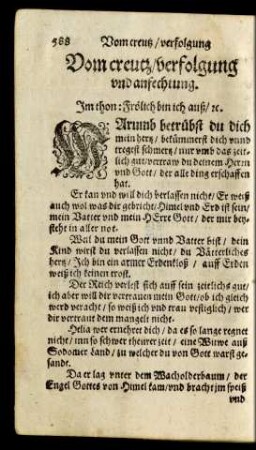 588 Vom creutz / verfolgung
Vom creutz / verfolgung
vnd anfechtung.
Im thon: Frölich bin ich auß / ꝛc.
WArumb betrübst du dich
mein hertz / bekümmerst dich vnnd
tregest schmertz / nur vmb das zeit-
lich gut / vertraw du deinem Herrn
vnd Gott / der alle ding erschaffen
hat.
Er kan vnd will dich verlassen nicht / Er weiß
auch wol was dir gebricht / Himel vnd Erd ist sein /
mein Vatter vnd mein HErre Gott / der mir bey-
steht in aller not.
Weil du mein Gott vnnd Vatter bist / dein
Kind wirst du verlassen nicht / du Vätterliches
hertz / Ich bin ein armer Erdenkloß / auff Erden
weiß ich keinen trost.
Der Reich verlest sich auff sein zeitlichs gut
/ ich aber will dir vertrauen mein Gott / ob ich gleich
werd veracht / so weiß ich vnd trau vestiglich / wer
dir vertraut dem mangelt nicht.
Helia wer ernehret dich / da es so lange regnet
nicht / inn so schwer theurer zeit / eine Witwe auß
Sodomer Land / zu welcher du von Gott warst ge-
sandt.
Da er lag vnter dem Wacholderbaum / der
Engel Gottes von Himel kam / vnd bracht jm speiß
vnd